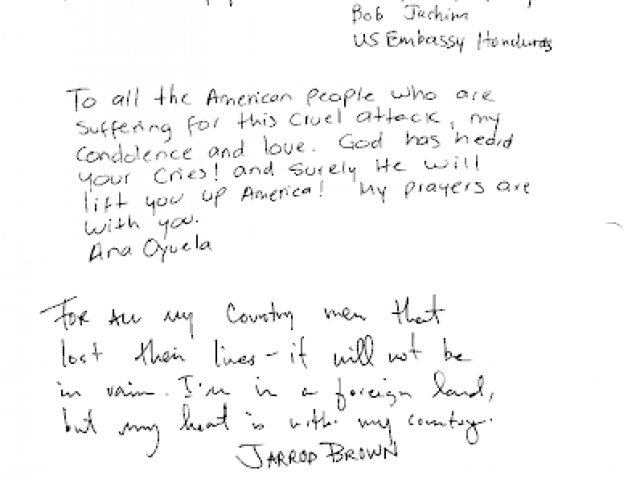 Bob Jachim
US Embassy Honduras
To all the American people who are
suffering for this Cruel attack, my
Condolence and love. God has heard
your Cries! and surely He will
lift you up America! My prayers are
with you.
Ana Oyuela
FOR ALL my Country men that
lost their lives - it will not be
in vain. I'm in a foreign land,
but my heat is with my country.
JARROD BROWN